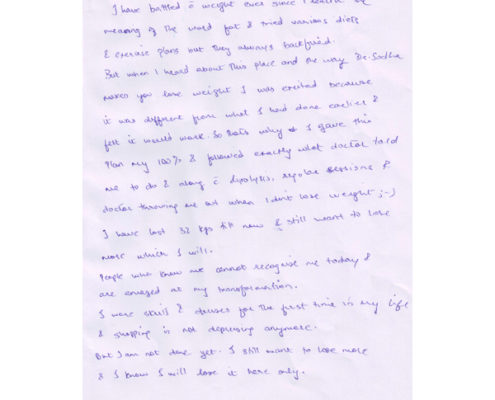 I have battled c̄ weight ever since I realise the
meaning of the word fat & tried various diets
& exercise plans but they always backfired.
But when I heard about this place and the way Dr. Sodha
makes you lose weight I was excited because
it was different from what I had done earlier &
felt it would work. So thats why I gave this
Plan my 100% & followed exactly what doctor told
me to do & along c̄ lipolysis, sessions &
doctor throwing me out when I dont lose weight ;-)
I have lost 32 kgs till now & still want to lose
more which I will.
People who know me cannot recognise me today &
are amazed at my transformation.
I wore skirts & dresses for the first time in my life
& shopping is not depressing anymore.
But I am not done yet. I still want to lose more
& I know I will lose it here only.